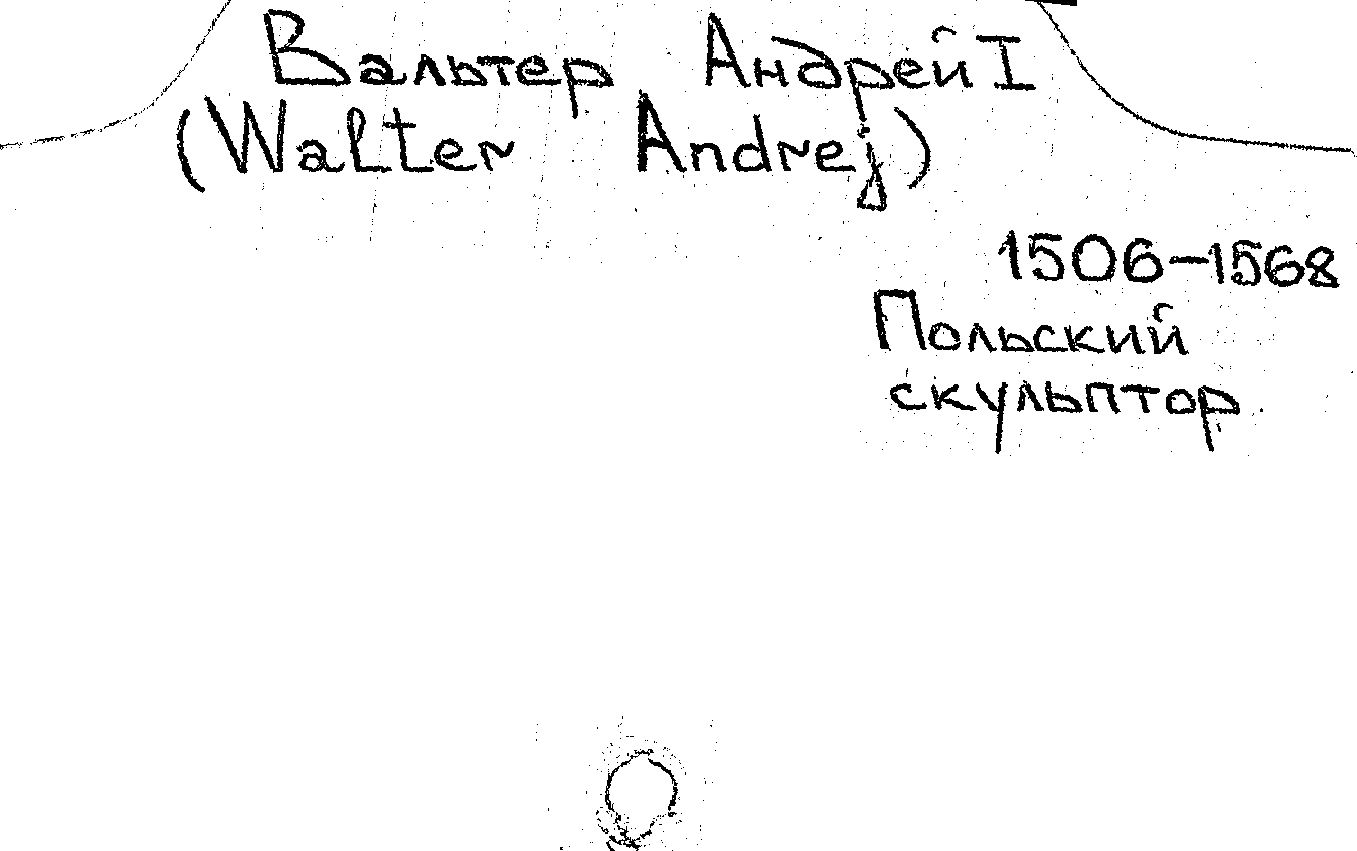 Вальтер Андрей I
(Walter Andrej)
1506-1568
Польский
скульптор